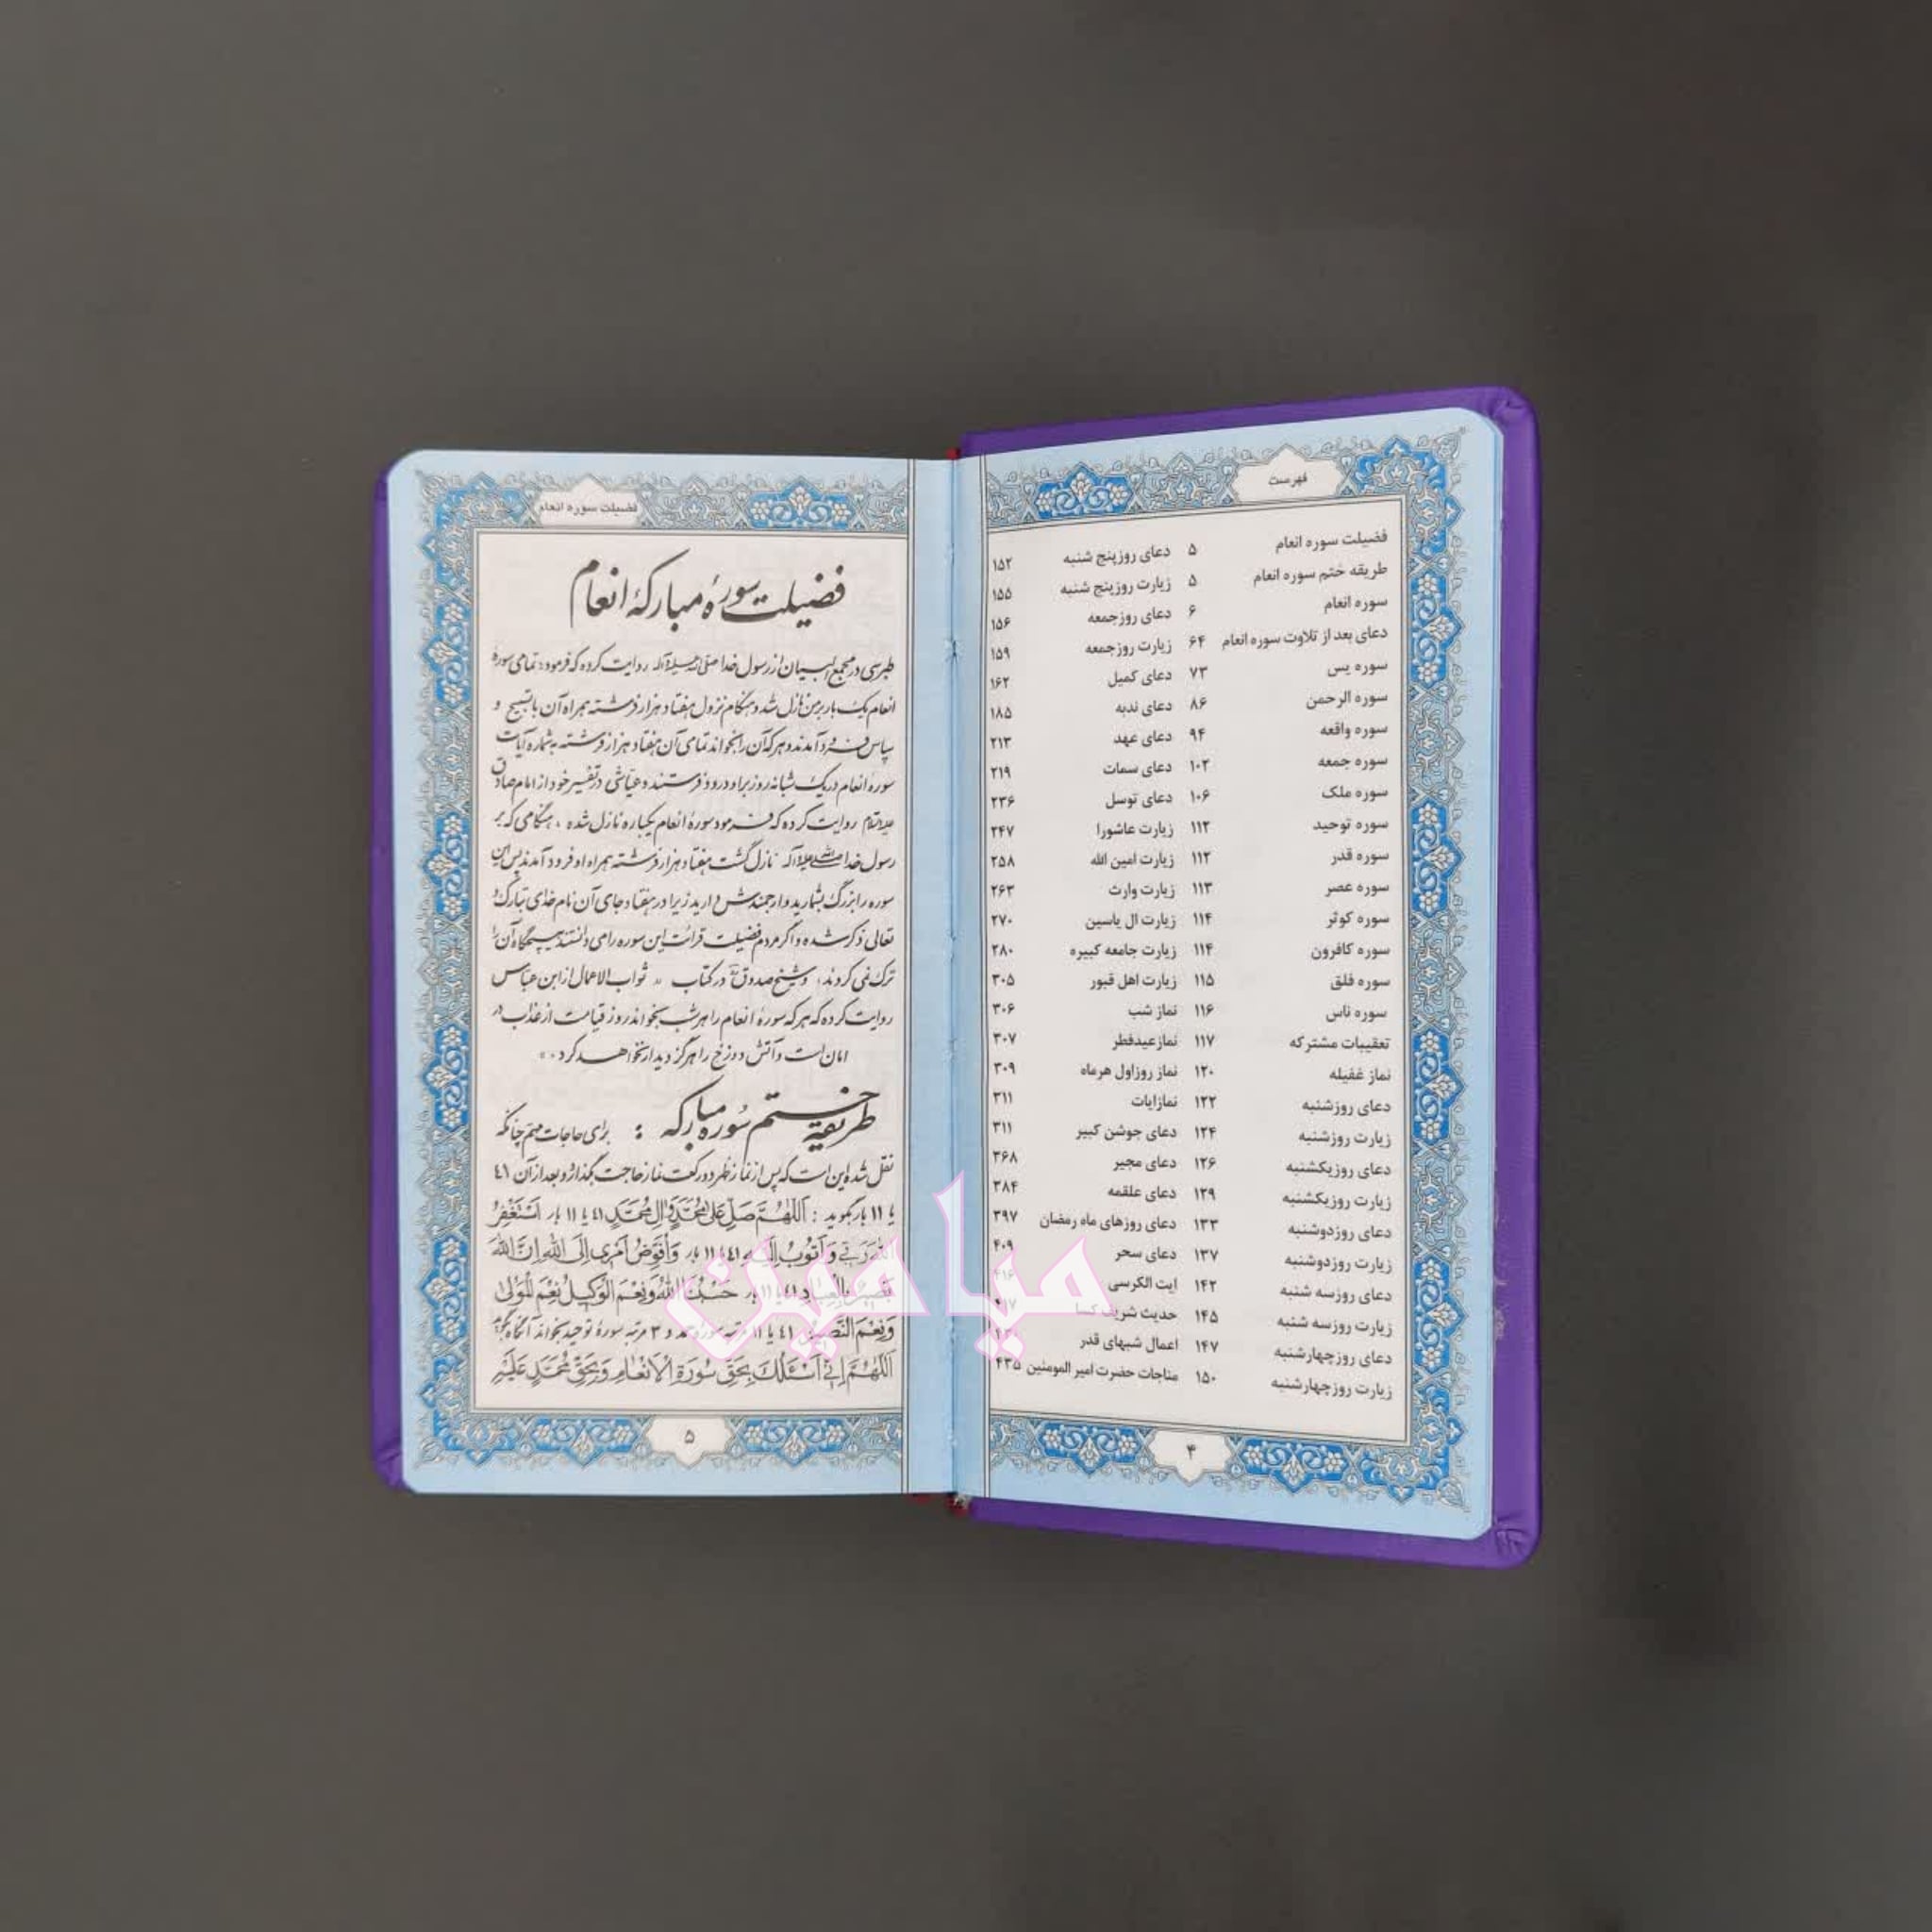 فهرست
فضیلت سوره انعام ۵
طریقه ختم سوره انعام ۵
سوره انعام ۶
دعای بعد از تلاوت سوره انعام ۶۴
سوره یس ۷۳
سوره الرحمن ۸۶
سوره واقعه ۹۴
سوره جمعه ۱۰۲
سوره ملک ۱۰۶
سوره توحید ۱۱۲
سوره قدر ۱۱۲
سوره عصر ۱۱۳
سوره کوثر ۱۱۴
سوره کافرون ۱۱۴
سوره فلق ۱۱۵
سوره ناس ۱۱۶
تعقیبات مشترکه ۱۱۷
نماز غفیله ۱۲۰
دعای روزشنبه ۱۲۲
زیارت روزشنبه ۱۲۴
دعای روزیکشنبه ۱۲۶
زیارت روزیکشنبه ۱۲۹
دعای روزدوشنبه ۱۳۳
زیارت روزدوشنبه ۱۳۷
دعای روزسه شنبه ۱۴۲
زیارت روزسه شنبه ۱۴۵
دعای روزچهارشنبه ۱۴۷
زیارت روزچهارشنبه ۱۵۰
دعای روزپنج شنبه ۱۵۲
زیارت روزپنج شنبه ۱۵۵
دعای روزجمعه ۱۵۶
زیارت روزجمعه ۱۵۹
دعای کمیل ۱۶۲
دعای ندبه ۱۸۵
دعای عهد ۲۱۳
دعای سمات ۲۱۹
دعای توسل ۲۳۶
زیارت عاشورا ۲۴۷
زیارت امین الله ۲۵۸
زیارت وارث ۲۶۳
زیارت ال یاسین ۲۷۰
زیارت جامعه کبیره ۲۸۰
زیارت اهل قبور ۳۰۵
نماز شب ۳۰۶
نمازعیدفطر ۳۰۷
نماز روزاول هرماه ۳۰۹
نمازایات ۳۱۱
دعای جوشن کبیر ۳۱۱
دعای مجیر ۳۶۸
دعای علقمه ۳۸۴
دعای روزهای ماه رمضان ۳۹۷
دعای سحر ۴۰۹
ایت الکرسی ۴۱۶
حدیث شریف کسا
اعمال شبهای قدر
مناجات حضرت امیر المومنین ۴۳۵
۴
فضیلت سوره انعام
فضیلت سورهٔ مبارکهٔ انعام
طبرسی در مجمع البیان از رسول خدا صلی الله علیه و آله روایت کرده که فرمود: تمامی سورهٔ
انعام یک بار بر من نازل شد و هنگام نزول هفتاد هزار فرشته همراه آن با تسبیح و
سپاس فرود آمدند و هر که آن را بخواند تمامی آن هفتاد هزار فرشته به شماره آیات
سورهٔ انعام در یک شبانه روز بر او درود فرستند و عیاشی در تفسیر خود از امام صادق
علیه السلام روایت کرده که فرمود سورهٔ انعام یکباره نازل شده، هنگامی که بر
رسول خدا صلی الله علیه و آله نازل گشت هفتاد هزار فرشته همراه او فرود آمدند پس این
سوره را بزرگ بشمارید و ارجمندش دارید زیرا در هفتاد جای آن نام خدای تبارک و
تعالی ذکر شده و اگر مردم فضیلت قرائت این سوره را می دانستند هیچگاه آن را
ترک نمی کردند، و شیخ صدوق در کتاب ثواب الاعمال از ابن عباس
روایت کرده که هر که سورهٔ انعام را هر شب بخواند روز قیامت از عذاب در
امان است و آتش دوزخ را هرگز دیدار نخواهد کرد
طریقهٔ ختم سوره مبارکه : برای حاجات مهم چنانکه
نقل شده این است که پس از نماز ظهر دو رکعت نماز حاجت بگذارد و بعد از آن ٤١
یا ١١ بار بگوید : اَللّهُمَّ صَلِّ عَلی مُحَمَّدٍ وَ الِ مُحَمَّدٍ ٤١ یا ١١ بار اَسْتَغْفِرُ
اللهَ رَبّی وَ اَتُوبُ اِلَیْهِ ٤١ یا ١١ بار وَ اُفَوِّضُ اَمْری اِلَی اللهِ اِنَّ اللهَ
بَصیرٌ بِالْعِبادِ ٤١ یا ١١ بار حَسْبُنَا اللهُ وَ نِعْمَ الْوَکیلُ نِعْمَ الْمَوْلی
وَ نِعْمَ النَّصیرُ ٤١ یا ١١ مرتبه سوره حمد و ٣ مرتبه سورهٔ توحید بخواند آنگاه بگوید
اَللّهُمَّ اِنّی اَسْئَلُكَ بِحَقِّ سُورَةِ الْاَنْعامِ وَ بِحَقِّ مُحَمَّدٍ عَلَیْهِ
۵
میامین